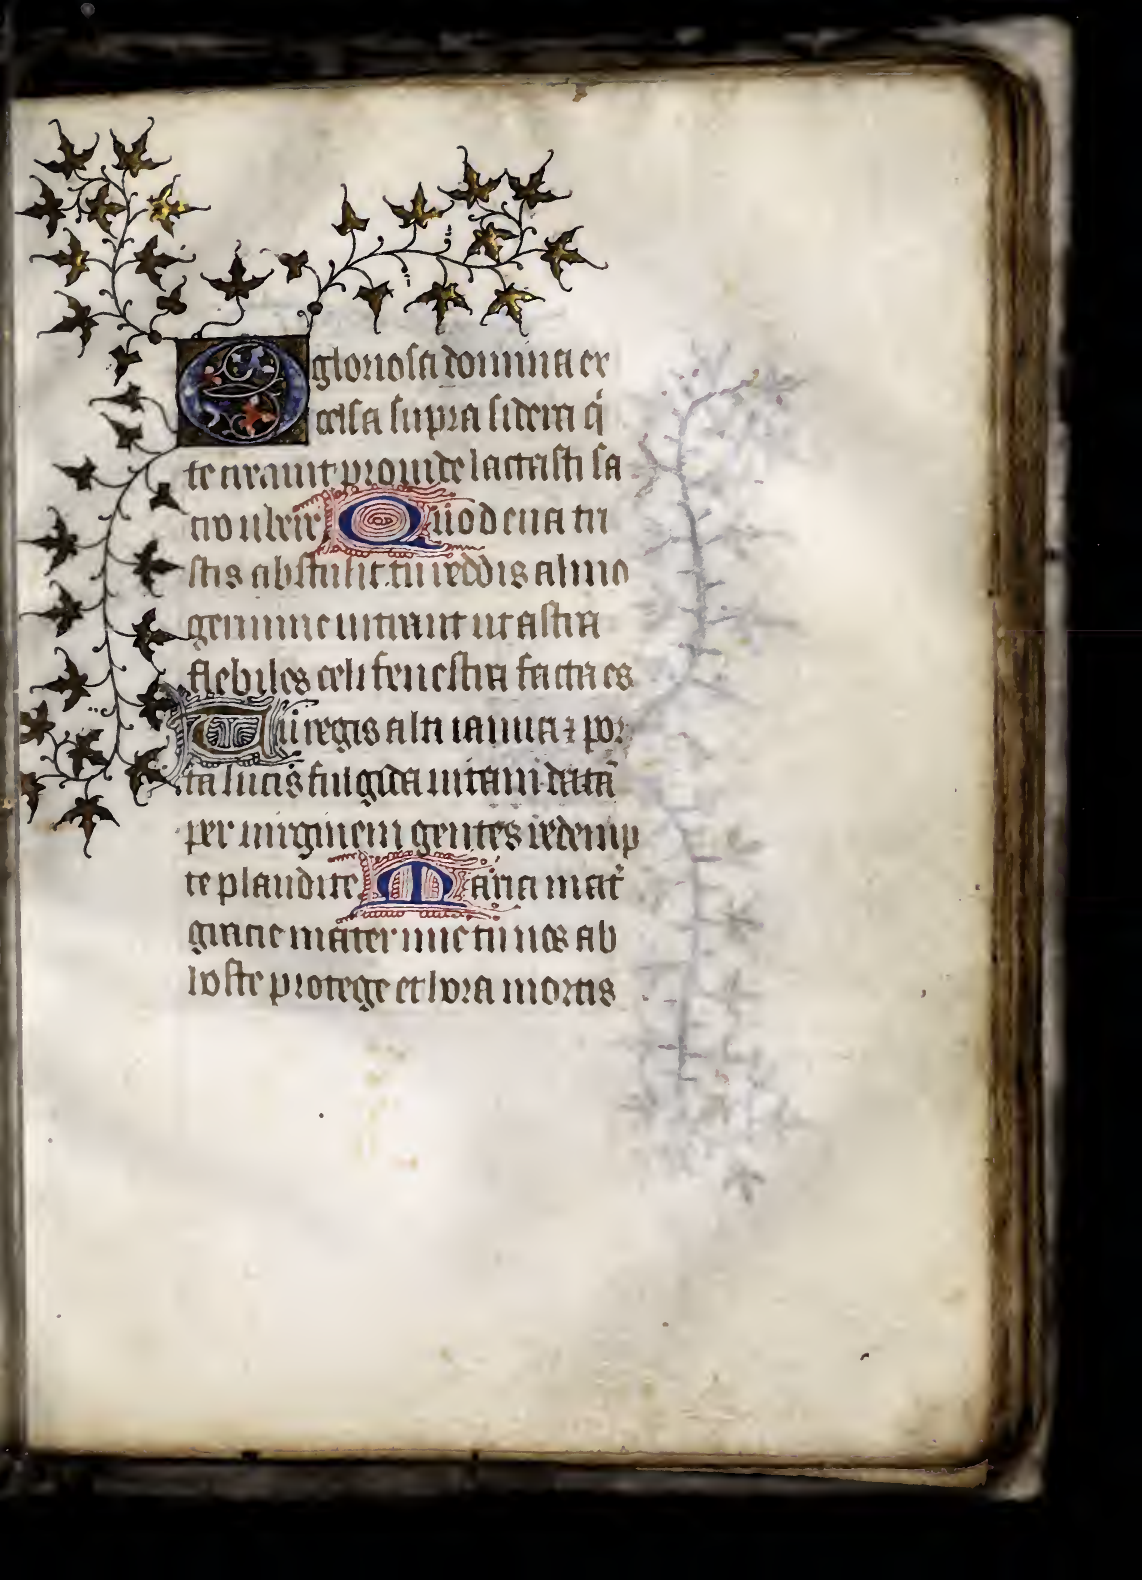 O gloriosa domina ex
celsa supra sidera q̄
te creauit prouide lactasti sa
cro ubere Quod eua tri
stis abstulit tu reddis almo
germine intrent ut astra
flebiles celi fenestra facta es
Tu regis alti ianua ⁊ por
ta lucis fulgida uitam datā
per uirginem gentes redemp
te plaudite Maria mat̄
gratie mater mie tu nos ab
hoste protege et hora mortis